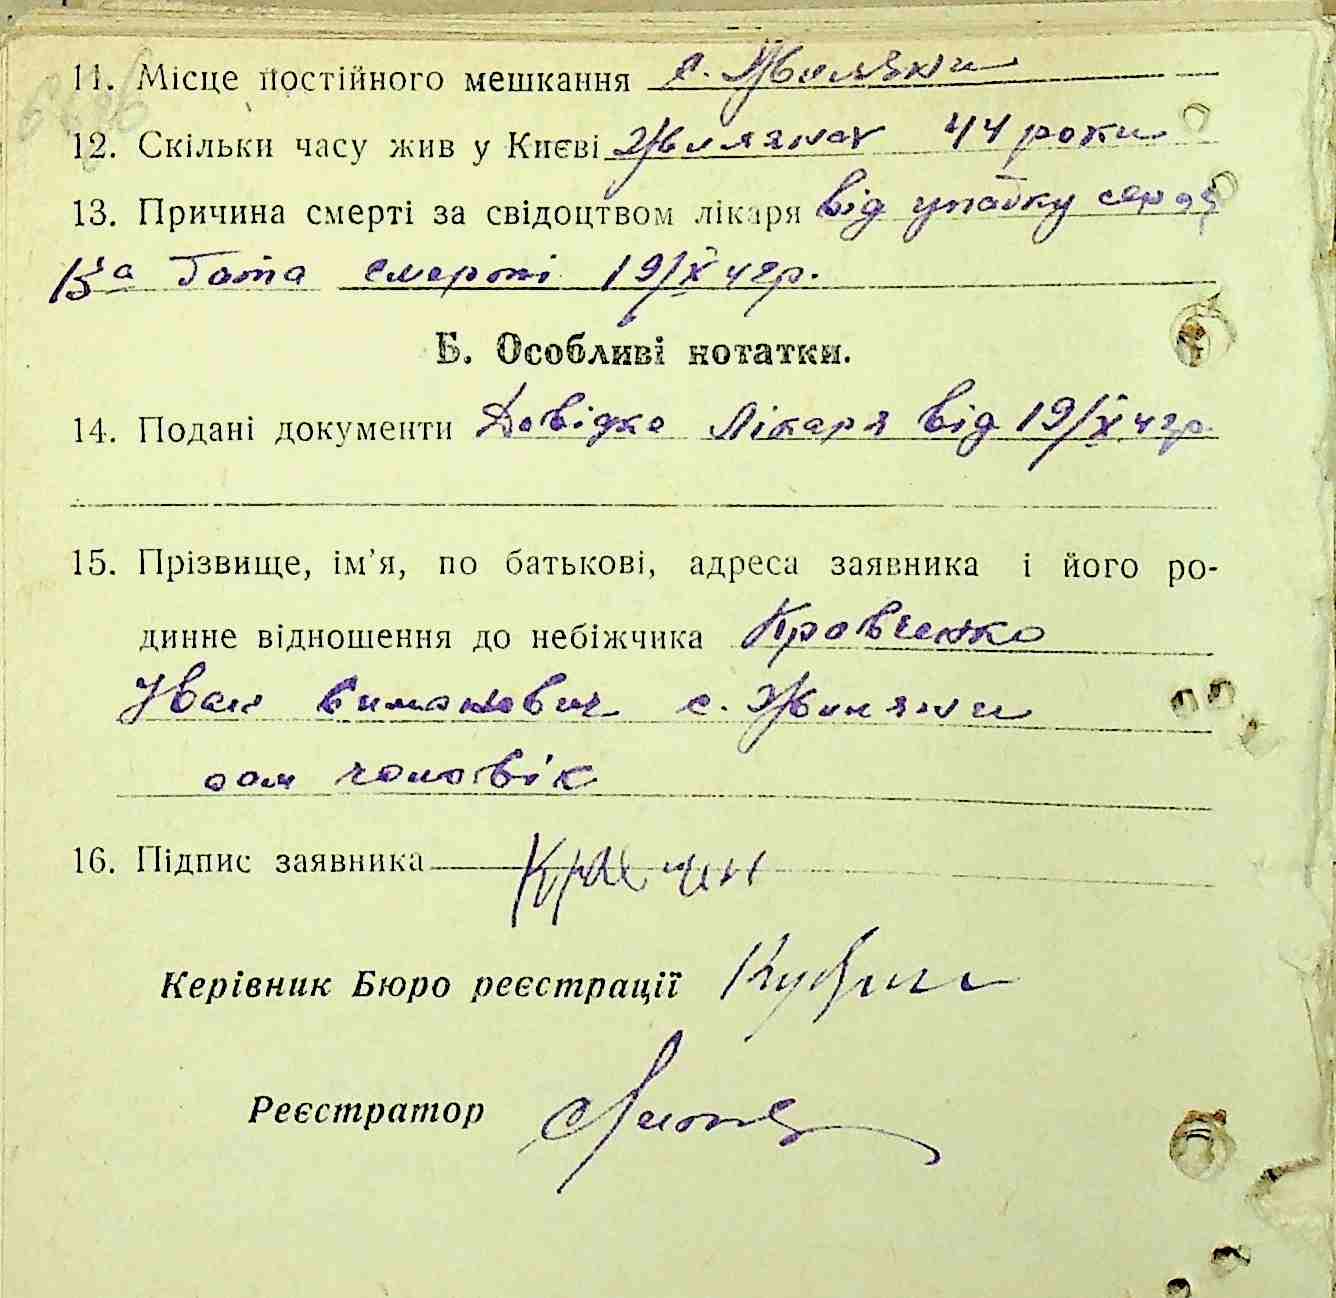 11. Місце постійного мешкання с. Жиляни
12. Скільки часу жив у Києві Жилянах 44 роки
13. Причина смерті за свідоцтвом лікаря від упадку серця
13а Дата смерті 19/X 42р.
Б. Особливі нотатки.
14. Подані документи Довідка Лікаря від 19/X 42р.
15. Прізвище, ім'я, по батькові, адреса заявника і його ро-
динне відношення до небіжчика Кравченко
Иван с. Жиляни
чоловік
16. Підпис заявника
Керівник Бюро реєстрації
Реєстратор